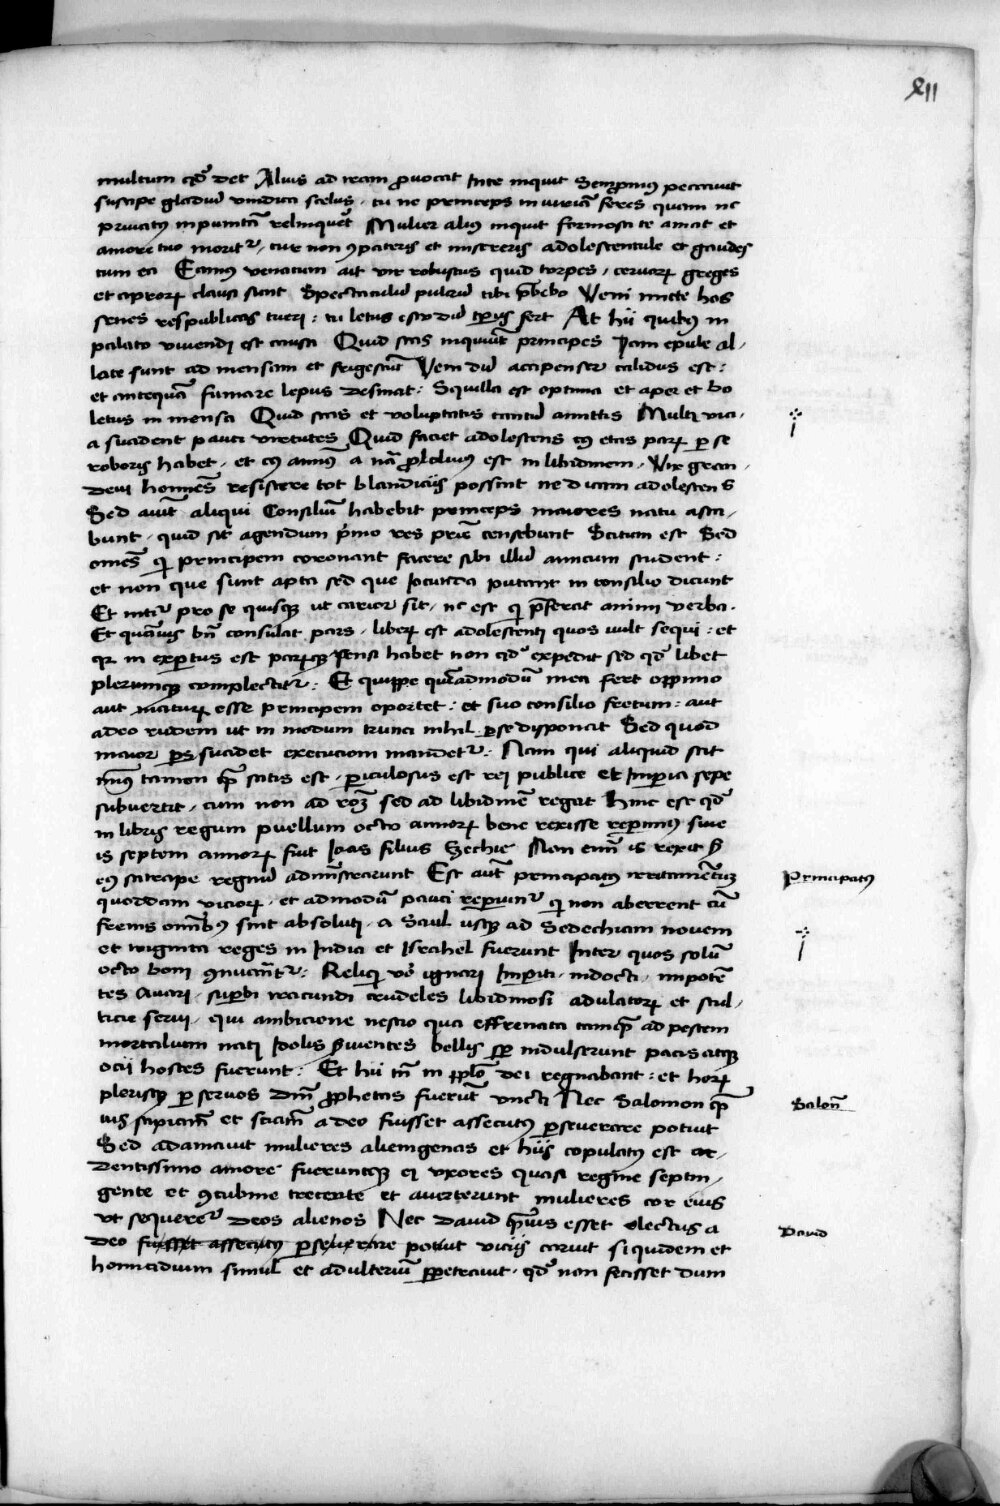 xii
multum qđ det Alius ad iram provocat Inte inquit Sempronius peccavit
suscipe gladiū vindica scelus · tu ne princeps iniuriā feres quam nec
privatus inpunitā relinqueret Mulier alius inquit formosa te amat et
amore tuo moritʳ · cur non ꝯpateris et misereris adolescentule et gaudes
cum ea Eamus venatum ait vir robustus quid torpes · cervoꝝ greges
et aproꝝ clausi sunt Spectaculū pulcrū tibi p̄bebo Veni mitte hos
senes respublicas tueri : tu letus esto dū tp̄us fert At hii quibus in
palato vivendi est causa Quid stas inquiūt principes Jam epule al-
late sunt ad mensam et frigescūt Veni dū accipenser calidus est :
et antequā fumare lepus desinat : Squilla est optima et aper et bo
letus in mensa Quid stas et voluptatis tantū amittis Multi vici-
a suadent pauci virtutes Quid faciet adolescens cuius etas paꝝ per se
roboris habet · et cuius animus a nā proclivus est in libidinem · Vix gran-
devi homines resistere tot blandiciis possunt nedum adolescens
Sed aiūt aliqui Consiliū habebit princeps maiores natu asta-
bunt · quid sit agendum primo res prius censebunt Scitum est Sed
omnes qui principem coronant facere sibi illū amicum student :
et non que sunt apta sed que Jocunda putant in consilio dicunt
Et nititʳ pro se quisque ut carior sit · nec est qui proferat animi verba .
Et quāvis bn̄ consulat pars · liberꝝ est adolescenti quos vult sequi : et
quia in expertus est paꝝque pensi habet non qđ expedit sed qđ libet
plerumque complectitʳ : Et quippe queadmodū mea fert oppinio
aut maturꝝ esse principem oportet : et suo consilio fretum : aut
adeo rudem ut in modum trunci nihil per se disponat Sed quod
maior pars suadet execucioni mandetʳ : Nam qui aliquid scit
minus tamen quam satis est · periculosus est rei publice et Imperia sepe
subvertit · cum non ad roēm sed ad libidinē regat Hinc est qđ
in libris regum puellum octo annoꝝ bene rexisse reperimus sive
is septem annoꝝ fuit Joas filius Ezechie Non enim is rexit sed
eius satrape regnū administrarunt Est autē principatus irritamentum
quoddam vicioꝝ · et admodū pauci reperiuntʳ qui non aberrent cū
frenis omnibus sint absoluti · a Saul usque ad Sedechiam novem
et triginta reges in Iudia et Israhel fuerunt Inter quos solū
octo boni ꝯnumerātʳ : Reliqui vero ignari Imperiti · indocti · impotē
tes avari · superbi iracundi crudeles libidinosi adulatoꝝ et stul-
ticie servi · qui ambicione nescio qua effrenata tamquam ad pestem
mortalium nati Idolis servientes bellis semper indulserunt pacis atque
ocii hostes fuerunt : Et hii tn̄ in pp̄lo dei regnabant : et hoꝝ
plerique per servos dm̄ prophetas fuerūt uncti Nec Salomon quam
vis sapiam et sciam a deo fuisset assecutus perseverare potuit
Sed adamavit mulieres alienigenas et hiis copulatus est ar-
dentissimo amore fueruntque ei uxores quasi regine septin-
gente et ꝯcubine trecente et averterunt mulieres cor eius
ut sequeretʳ deos alienos Nec David quamvis esset electus a
deo fuisset assecutus perseverare potuit viciis caruit siquidem et
homicidium simul et adulteriū perpetravit · qđ non fecisset dum
Principatus
Salon̄
David